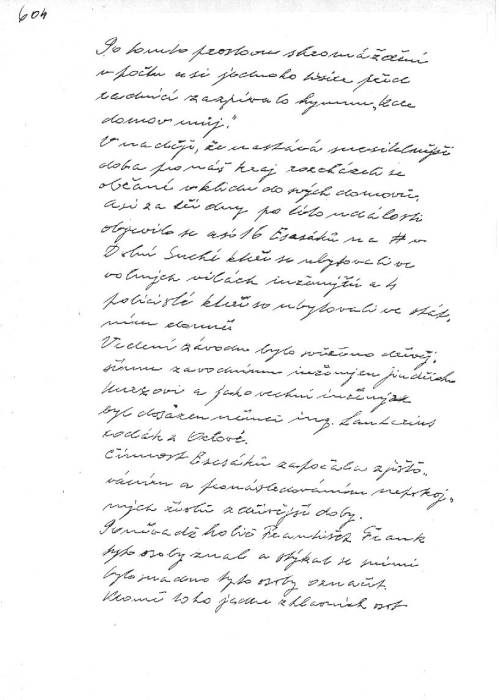 604
Po tomto proslovu shromáždění
v počtu asi jednoho tisíce před
radnicí zazpívalo hymnu „Kde
domov můj."
V naději, že nastává snesitelnější
doba pro náš kraj rozcházeli se
občané v klidu do svých domovů.
Asi za tři dny po této události
objevilo se asi 16 Esesáků na # v
Dolní Suché kteří se ubytovali ve
volných vilách inženýrů a 4
policisté kteří se ubytovali ve stát„
ním domě
Vedení závodu bylo svěřeno dřívěj„
šímu závodnímu inženýru Jindřichu
Kurzovi a jako vedoucí inženýr
byl dosazen němec ing. Lanterius
rodák z Orlové.
Činnost Esesáků započala zjišťo„
váním a pronásledováním nepokoj„
ných živlů z dřívější doby.
Poněvadž holič František Frank
tyto osoby znal a stýkal se s nimi
bylo snadno tyto osoby označit.
Kromě toho jednu z hlavních osob